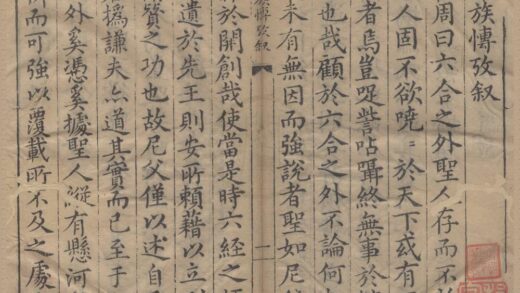 族愽攷叙
周曰六合之外聖人存而不
人固不欲嘵〻於天下或有
者焉豈哫訾呫囁終無事於
也哉顧於六合之外不論何
未有無因而強說者聖如尼
愽攷叙
一
於開創哉使當是時六經之
遺於先王則安所頼藉以立
贊之功也故尼父僅以述自
撝謙夫亦道其實而已至于
外奚憑奚據聖人縱有懸河
而可強以覆載所不及之處